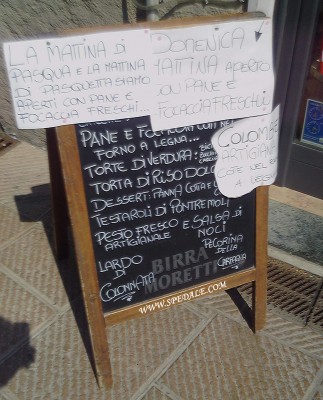 LA MATTINA DI
PASQUA E LA MATTINA
DI PASQUETTA SIAMO
APERTI CON PANE E
FOCACCIA FRESCHI...
DOMENICA
MATTINA APERTO
CON PANE E
FOCACCIA FRESCHI
COLOMBE
ARTIGIANALI
COTTE NEL
A LEGNA
PANE E FOCACCIA COTTI NEL
FORNO A LEGNA...
TORTE DI VERDURA:
TORTA DI RISO DOLCE
DESSERT: PANNA COTTA E
TESTAROLI DI PONTREMOLI
PESTO FRESCO E SALSA DI
ARTIGIANALE NOCI
LARDO
DI
COLONNATA
PECORINO
DELLA
GARFAGNANA
BIRRA
MORETTI
WWW.SPEDALE.COM